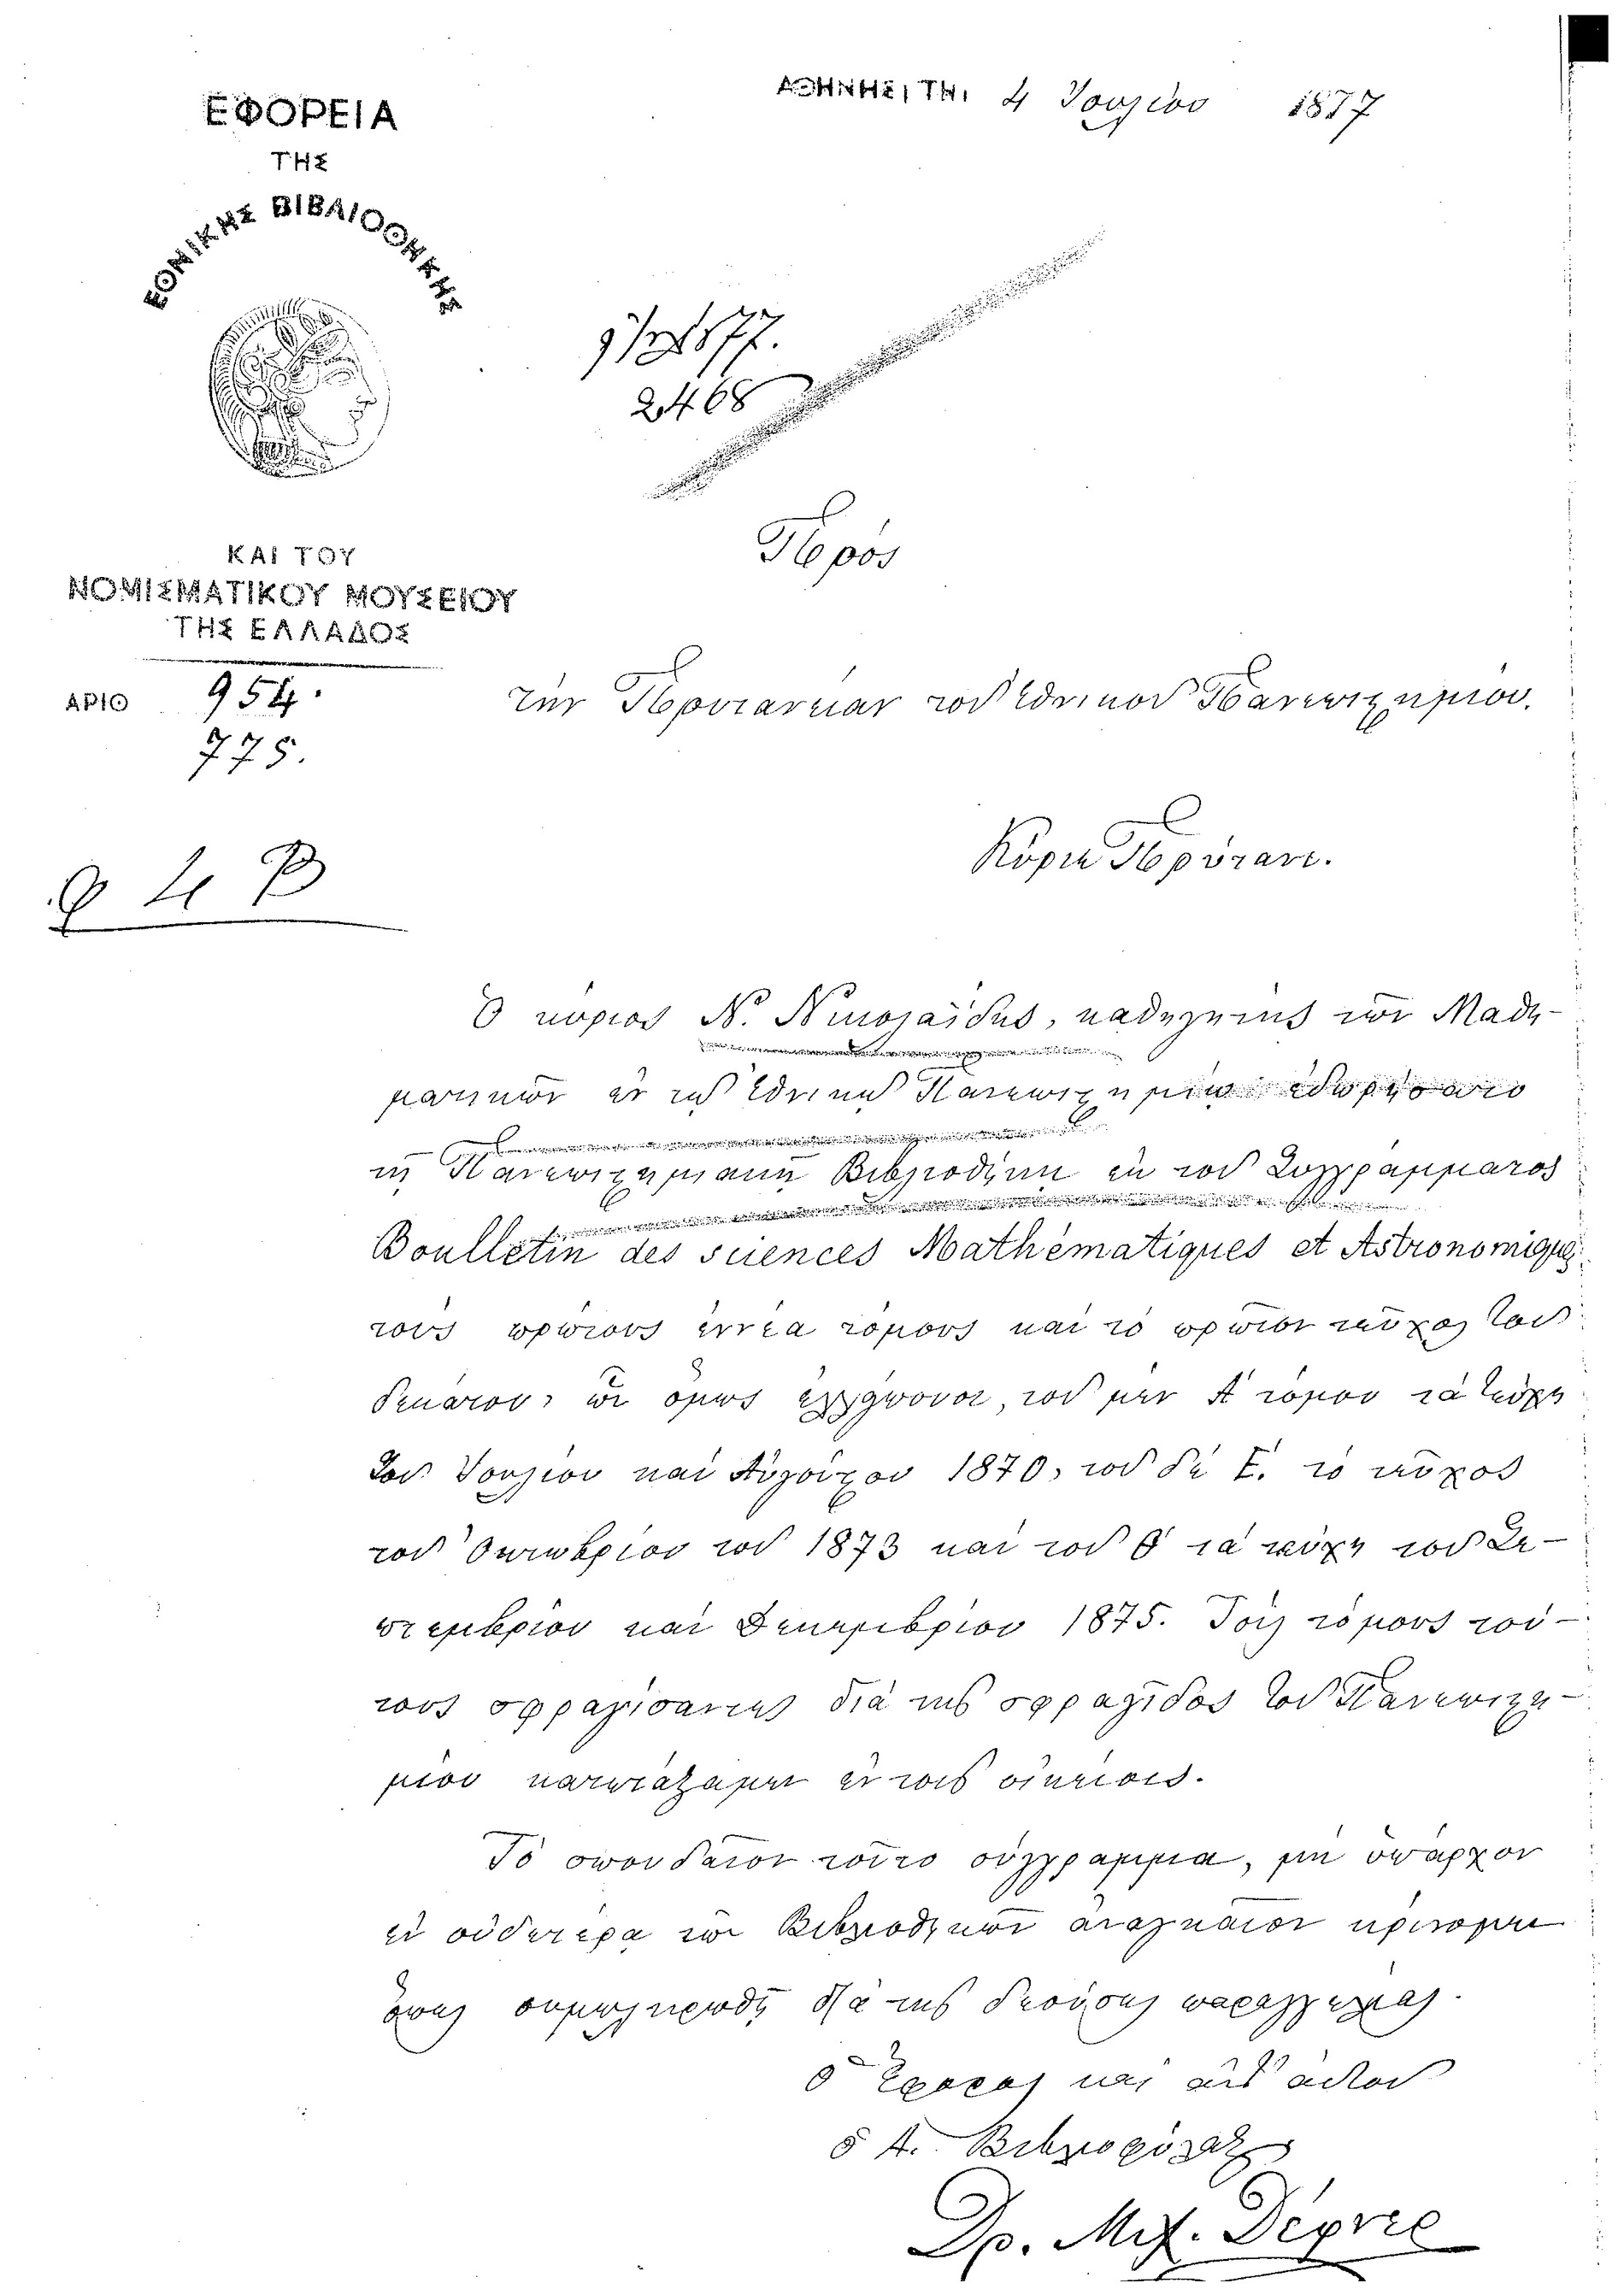 ΕΦΟΡΕΙΑ
ΤΗΣ
ΕΘΝΙΚΗΣ ΒΙΒΛΙΟΘΗΚΗΣ
ΚΑΙ ΤΟΥ
ΝΟΜΙΣΜΑΤΙΚΟΥ ΜΟΥΣΕΙΟΥ
ΤΗΣ ΕΛΛΑΔΟΣ
ΑΡΙΘ 954.
775.
ΑΘΗΝΗΣΙ ΤΗΙ 4 Ἰουλίου 1877
2468
Πρὸς
τὴν Πρυτανείαν τοῦ Ἐθνικοῦ Πανεπιστημίου.
Κύριε Πρύτανι.
Ὁ κύριος Ν. Νικολαΐδης, καθηγητὴς τῶν Μαθη-
ματικῶν ἐν τῷ Ἐθνικῷ Πανεπιστημίῳ ἐδωρήσατο
τῇ Πανεπιστημιακῇ Βιβλιοθήκῃ ἐκ τοῦ Συγγράμματος
Boulletin des sciences Mathématiques et Astronomiques
τοὺς πρώτους ἐννέα τόμους καὶ τὸ πρῶτον τεῦχος τοῦ
δεκάτου, ὧν ὅμως ἐλλείπουσι, τοῦ μὲν Α τόμου τὰ τεύχη
τοῦ Ἰουλίου καὶ Αὐγούστου 1870, τοῦ δὲ Ε. τὸ τεῦχος
τοῦ Ὀκτωβρίου τοῦ 1873 καὶ τοῦ Θ τὰ τεύχη τοῦ Σε-
πτεμβρίου καὶ Δεκεμβρίου 1875. Τοὺς τόμους τού-
τους σφραγίσαντες διὰ τῆς σφραγίδος τοῦ Πανεπιστη-
μίου κατετάξαμεν ἐν τοῖς οἰκείοις.
Τὸ σπουδαῖον τοῦτο σύγγραμμα, μὴ ὑπάρχον
ἐν οὐδετέρᾳ τῶν Βιβλιοθηκῶν ἀναγκαῖον κρίνομεν
ὅπως συμπληρωθῇ διὰ τῆς δεούσης παραγγελίας.
ὁ Ἔφορος καὶ ἀντ' αὐτοῦ
ὁ Α. Βιβλιοφύλαξ